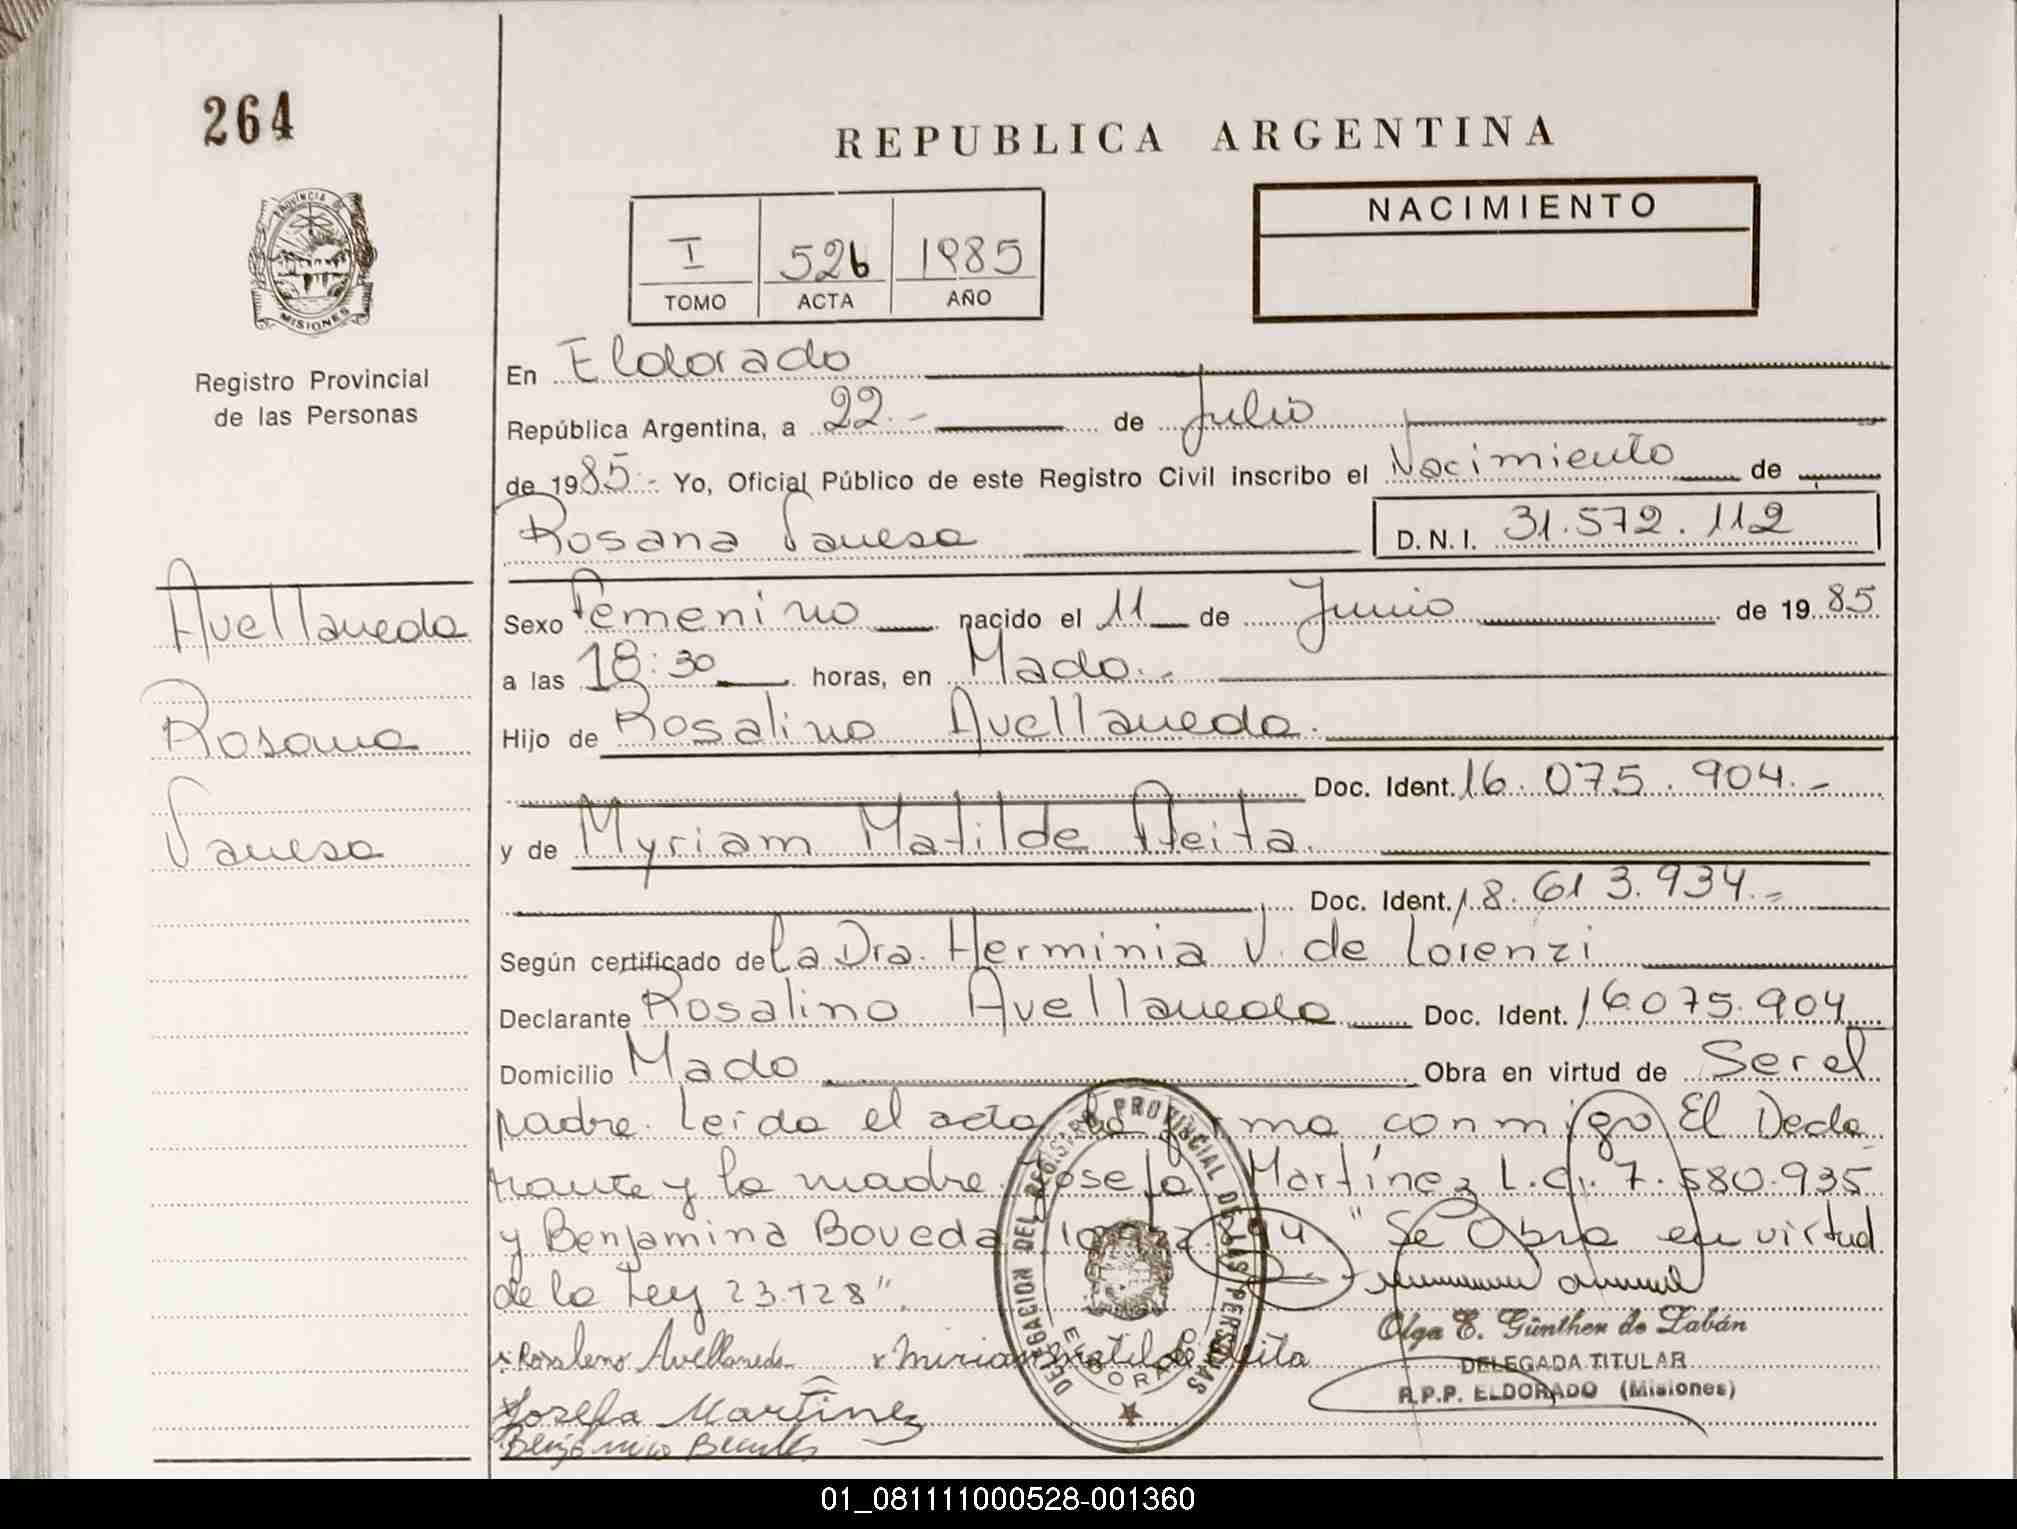 264
PROVINCIA DE
MISIONES
Registro Provincial
de las Personas
Avellaneda
Rosana
Vanesa
REPUBLICA ARGENTINA
I 526 1985
TOMO ACTA AÑO
NACIMIENTO
En Eldorado
República Argentina, a 22.- de Julio
de 1985.- Yo, Oficial Público de este Registro Civil inscribo el Nacimiento de
Rosana Vanesa D.N.I. 31.572.112
Sexo Femenino nacido el 11 de Junio de 1985
a las 18:30 horas, en Mado.-
Hijo de Rosalino Avellaneda.
Doc. Ident. 16.075.904.-
y de Myriam Matilde Aeita.
Doc. Ident. 18.613.934.-
Según certificado de la Dra. Herminia V. de Lorenzi
Declarante Rosalino Avellaneda Doc. Ident. 16075.904
Domicilio Mado Obra en virtud de Ser el
padre. Leída el acta la firma conmigo El Decla
rante y la madre. Josefa Martínez L.c. 7.580.935
y Benjamina Boveda "Se Obra en virtud
de la Ley 23.128".
Rosaleno Avellaneda Mirian Matilde Aeita
Josefa Martínez
DELEGACION DEL REGISTRO PROVINCIAL DE LAS PERSONAS
ELDORADO
Olga E. Günther de Labán
DELEGADA TITULAR
R.P.P. ELDORADO (Misiones)
01_081111000528-001360